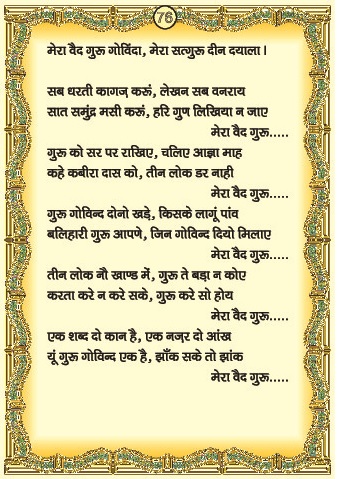 76
मेरा वैद गुरू गोविंदा, मेरा सत्गुरू दीन दयाला ।
सब धरती कागज़ करूं, लेखन सब वनराय
सात समुंद्र मसी करूं, हरि गुण लिखिया न जाए
मेरा वैद गुरू.....
गुरू को सर पर राखिए, चलिए आज्ञा माह
कहे कबीरा दास को, तीन लोक डर नाही
मेरा वैद गुरू.....
गुरू गोविन्द दोनो खड़े, किसके लागूं पांव
बलिहारी गुरू आपणे, जिन गोविन्द दियो मिलाए
मेरा वैद गुरू.....
तीन लोक नौ खाण्ड में, गुरू ते बड़ा न कोए
करता करे न करे सके, गुरू करे सो होय
मेरा वैद गुरू.....
एक शब्द दो कान है, एक नज़र दो आंख
यूं गुरू गोविन्द एक है, झाँक सके तो झांक
मेरा वैद गुरू.....